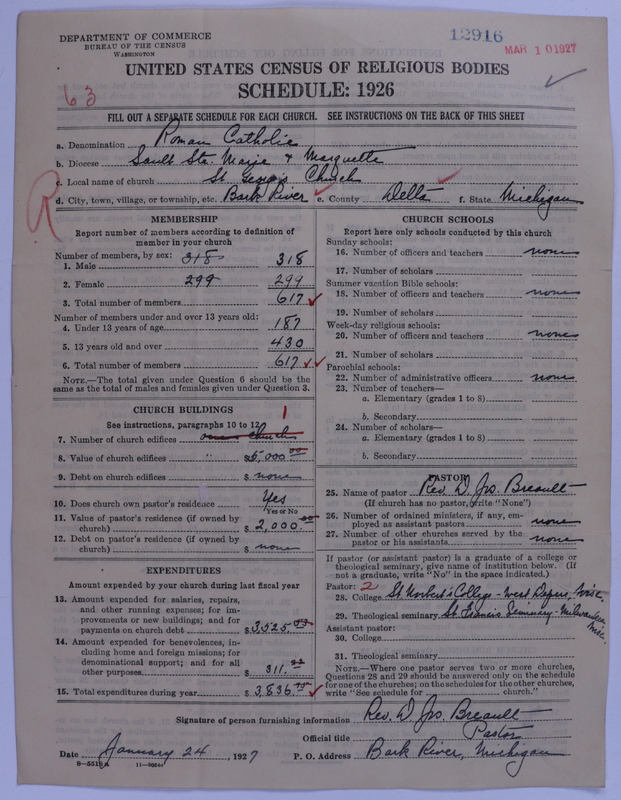 DEPARTMENT OF COMMERCE
BUREAU OF THE CENSUS
WASHINGTON
12916
MAR 10 1927
UNITED STATES CENSUS OF RELIGIOUS BODIES
SCHEDULE: 1926
63
FILL OUT A SEPARATE SCHEDULE FOR EACH CHURCH. SEE INSTRUCTIONS ON THE BACK OF THIS SHEET
a. Denomination Roman Catholic
b. Diocese Sault Ste. Marie & Marquette
c. Local name of church St Georges Church
d. City, town, village, or township, etc. Bark River e. County Delta f. State Michigan
R
MEMBERSHIP
Report number of members according to definition of
member in your church
Number of members, by sex:
1. Male 318 318
2. Female 299 299
3. Total number of members 617
Number of members under and over 13 years old:
4. Under 13 years of age 187
5. 13 years old and over 430
6. Total number of members 617
NOTE.—The total given under Question 6 should be the
same as the total of males and females given under Question 3.
CHURCH BUILDINGS
See instructions, paragraphs 10 to 12
1
7. Number of church edifices church
8. Value of church edifices " $5,000.00
9. Debt on church edifices $ none
10. Does church own pastor's residence Yes
Yes or No
11. Value of pastor's residence (if owned by
church) $2,000.00
12. Debt on pastor's residence (if owned by
church) $ none
EXPENDITURES
Amount expended by your church during last fiscal year
13. Amount expended for salaries, repairs,
and other running expenses; for im-
provements or new buildings; and for
payments on church debt $3,525.00
14. Amount expended for benevolences, in-
cluding home and foreign missions; for
denominational support; and for all
other purposes $ 311.
15. Total expenditures during year $3,836.
CHURCH SCHOOLS
Report here only schools conducted by this church
Sunday schools:
16. Number of officers and teachers none
17. Number of scholars
Summer vacation Bible schools:
18. Number of officers and teachers none
19. Number of scholars
Week-day religious schools:
20. Number of officers and teachers none
21. Number of scholars
Parochial schools:
22. Number of administrative officers none
23. Number of teachers—
a. Elementary (grades 1 to 8)
b. Secondary
24. Number of scholars—
a. Elementary (grades 1 to 8)
b. Secondary
PASTOR
25. Name of pastor Rev. D. Jos Breault
(If church has no pastor, write "None")
26. Number of ordained ministers, if any, em-
ployed as assistant pastors none
27. Number of other churches served by the
pastor or his assistants none
If pastor (or assistant pastor) is a graduate of a college or
theological seminary, give name of institution below. (If
not a graduate, write "No" in the space indicated.)
Pastor: 2
28. College St Norbert's College - West Depere, Wisc.
29. Theological seminary St Francis Seminary - Milwaukee
Assistant pastor:
30. College
31. Theological seminary
NOTE.—Where one pastor serves two or more churches,
Questions 28 and 29 should be answered only on the schedule
for one of the churches; on the schedules for the other churches,
write "See schedule for church."
Signature of person furnishing information Rev. D Jos Breault
Official title Pastor
Date January 24, 1927 P. O. Address Bark River, Michigan
8—5513A